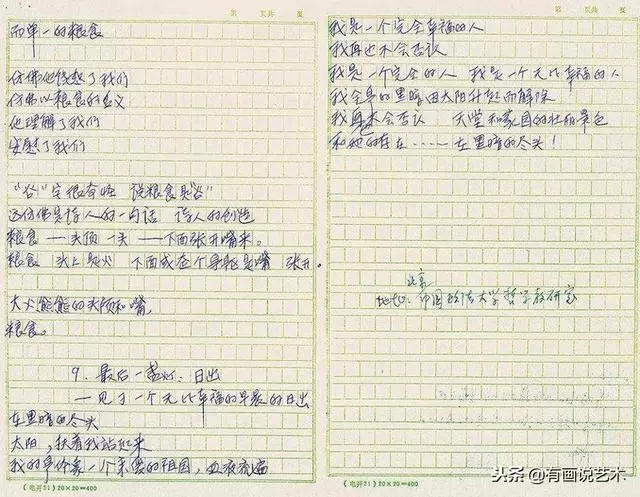 第　页共　页
而单一的粮食
仿佛他饶恕了我们
仿佛以粮食的名义
他理解了我们
安慰了我们
“谷”字很奇怪　说粮食是“谷”
这仿佛是诗人的一句话　诗人的创造
粮食——头顶一头——下面张开嘴来。
粮食　头上是火　下面或整个身躯是嘴　张开。
大火熊熊的头顶和嘴,
粮食。
9. 最后一盏灯、日出
——见于一个无比幸福的早晨的日出
在黑暗的尽头
太阳，扶着我站起来
我的身体像一个亲爱的祖国，血液流遍
(电开21) 20×20=400
第　页共　页
我是一个完全幸福的人
我再也不会否认
我是一个完全的人　我是一个无比幸福的人
我全身的黑暗因太阳升起而解除
我再也不会否认　天堂和家园的壮丽景色
和她的存在……在黑暗的尽头！
北京
地址：中国政法大学哲学教研室
(电开21) 20×20=400
头条 @有画说艺术